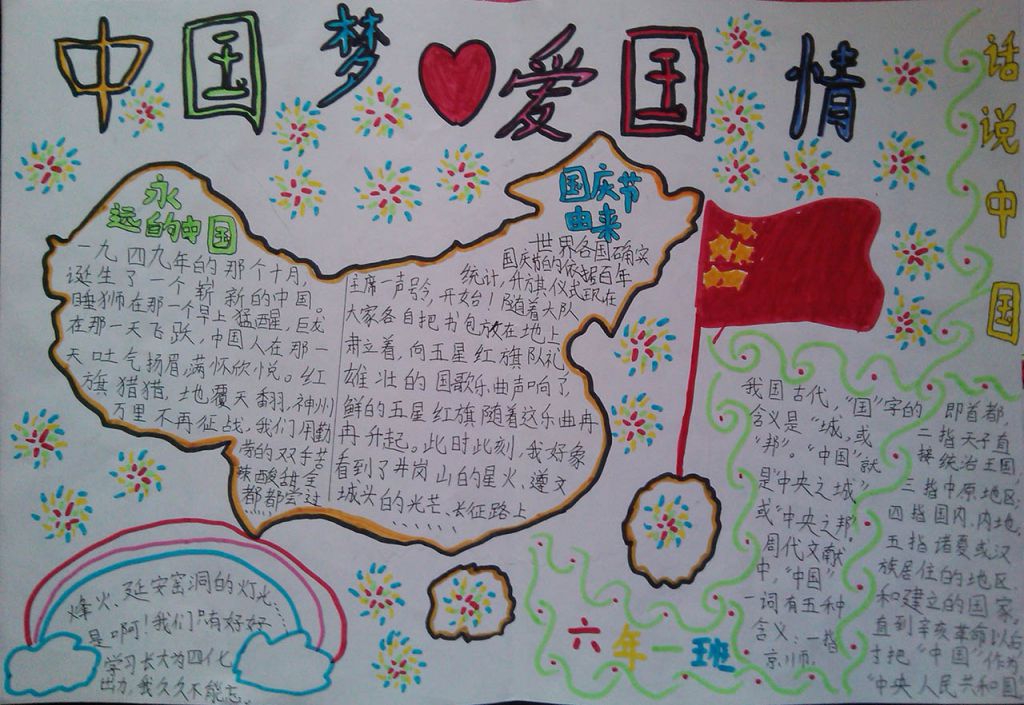 中国梦爱国情
话说中国
永
远的中国
一九四九年的那个十月,
诞生了一个崭新的中国。
睡狮在那一个早上猛醒,巨龙
在那一天飞跃,中国人在那一
天吐气扬眉,满怀欣悦。红
旗猎猎,地覆天翻,神州
万里不再征战,我们用勤
劳的双手苦
辣酸甜全
都都尝过
国庆节
由来
世界各国确实
国庆节的依据百年
统计,升旗仪式现在
主席一声号令,开始!随着大队
大家各自把书包放在地上
肃立着,向五星红旗队礼,
雄壮的国歌乐曲声响了,
鲜的五星红旗随着这乐曲冉
冉升起。此时此刻,我好象
看到了井岗山的星火,遵义
城头的光芒、长征路上
......
烽火、延安窑洞的灯火...
是啊!我们只有好好
学习长大为四化
出力,我久久不能忘。
六年一班
我国古代,“国”字的
含义是“城,或
“邦”。“中国”就
是“中央之城”
或“中央之邦,
周代文献
中,“中国”
一词有五种
含义:一指
京师,
即首都,
二指天子直
接统治王国,
三指中原地区,
四指国内、内地,
五指诸夏或汉
族居住的地区
和建立的国家。
直到辛亥革命以后
才把“中国”作为
“中央人民共和国”